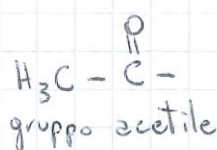 O
H₃C - C -
gruppo acetile